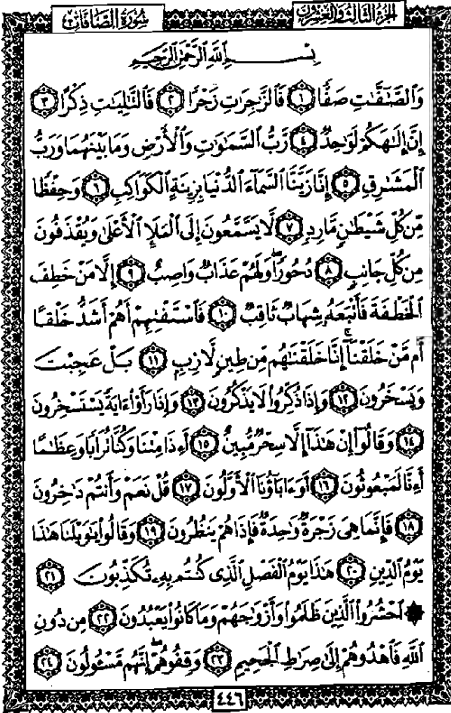 الجزء الثالث والعشرون سورة الصافات
بِسْمِ اللَّهِ الرَّحْمَٰنِ الرَّحِيمِ
وَٱلصَّٰٓفَّٰتِ صَفًّا ١ فَٱلزَّٰجِرَٰتِ زَجْرًا ٢ فَٱلتَّٰلِيَٰتِ ذِكْرًا ٣
إِنَّ إِلَٰهَكُمْ لَوَٰحِدٌ ٤ رَّبُّ ٱلسَّمَٰوَٰتِ وَٱلْأَرْضِ وَمَا بَيْنَهُمَا وَرَبُّ
ٱلْمَشَٰرِقِ ٥ إِنَّا زَيَّنَّا ٱلسَّمَآءَ ٱلدُّنْيَا بِزِينَةٍ ٱلْكَوَاكِبِ ٦ وَحِفْظًا
مِّن كُلِّ شَيْطَٰنٍ مَّارِدٍ ٧ لَّا يَسَّمَّعُونَ إِلَى ٱلْمَلَإِ ٱلْأَعْلَىٰ وَيُقْذَفُونَ
مِن كُلِّ جَانِبٍ ٨ دُحُورًا ۖ وَلَهُمْ عَذَابٌ وَاصِبٌ ٩ إِلَّا مَنْ خَطِفَ
ٱلْخَطْفَةَ فَأَتْبَعَهُۥ شِهَابٌ ثَاقِبٌ ١٠ فَٱسْتَفْتِهِمْ أَهُمْ أَشَدُّ خَلْقًا
أَم مَّنْ خَلَقْنَآ ۚ إِنَّا خَلَقْنَٰهُم مِّن طِينٍ لَّازِبٍۭ ١١ بَلْ عَجِبْتَ
وَيَسْخَرُونَ ١٢ وَإِذَا ذُكِّرُوا۟ لَا يَذْكُرُونَ ١٣ وَإِذَا رَأَوْا۟ ءَايَةً يَسْتَسْخِرُونَ
١٤ وَقَالُوٓا۟ إِنْ هَٰذَآ إِلَّا سِحْرٌ مُّبِينٌ ١٥ أَءِذَا مِتْنَا وَكُنَّا تُرَابًا وَعِظَٰمًا
أَءِنَّا لَمَبْعُوثُونَ ١٦ أَوَءَابَآؤُنَا ٱلْأَوَّلُونَ ١٧ قُلْ نَعَمْ وَأَنتُمْ دَٰخِرُونَ
١٨ فَإِنَّمَا هِىَ زَجْرَةٌ وَٰحِدَةٌ فَإِذَا هُمْ يَنظُرُونَ ١٩ وَقَالُوا۟ يَٰوَيْلَنَا هَٰذَا
يَوْمُ ٱلدِّينِ ٢٠ هَٰذَا يَوْمُ ٱلْفَصْلِ ٱلَّذِى كُنتُم بِهِۦ تُكَذِّبُونَ ٢١
۞ ٱحْشُرُوا۟ ٱلَّذِينَ ظَلَمُوا۟ وَأَزْوَٰجَهُمْ وَمَا كَانُوا۟ يَعْبُدُونَ ٢٢ مِن دُونِ
ٱللَّهِ فَٱهْدُوهُمْ إِلَىٰ صِرَٰطِ ٱلْجَحِيمِ ٢٣ وَقِفُوهُمْ ۖ إِنَّهُم مَّسْـُٔولُونَ ٢٤
٤٤٦